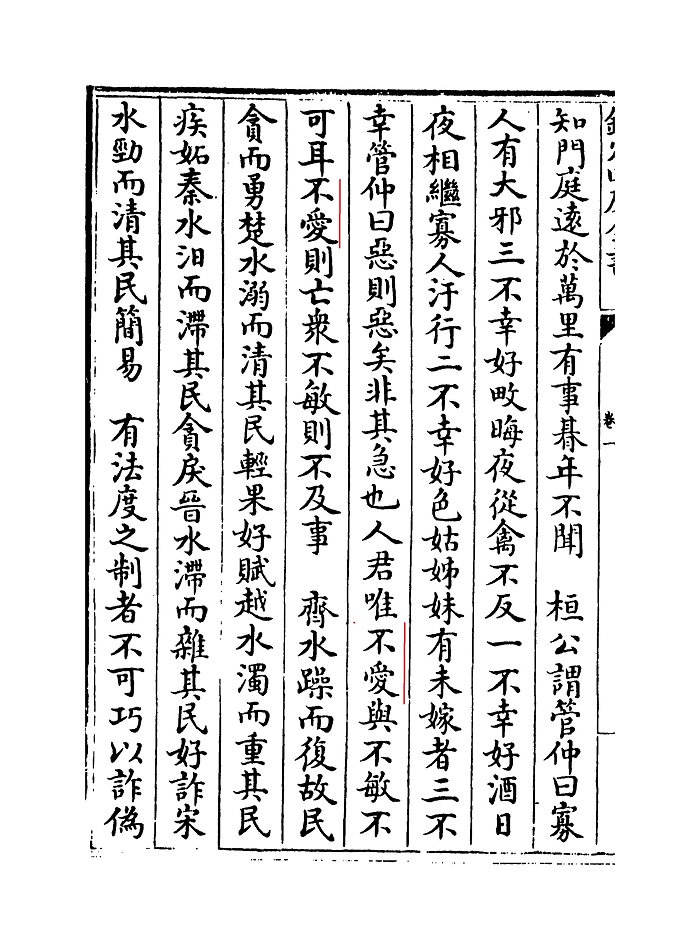 知門庭遠於萬里有事朞年不聞　桓公謂管仲曰寡
人有大邪三不幸好畋晦夜從禽不反一不幸好酒日
夜相繼寡人汙行二不幸好色姑姊妹有未嫁者三不
幸管仲曰惡則惡矣非其急也人君唯不愛與不敏不
可耳不愛則亡衆不敏則不及事　齊水躁而復故民
貪而勇楚水溺而清其民輕果好賦越水濁而重其民
疾妬秦水汨而滯其民貪戾晉水滯而雜其民好詐宋
水勁而清其民簡易　有法度之制者不可巧以詐偽